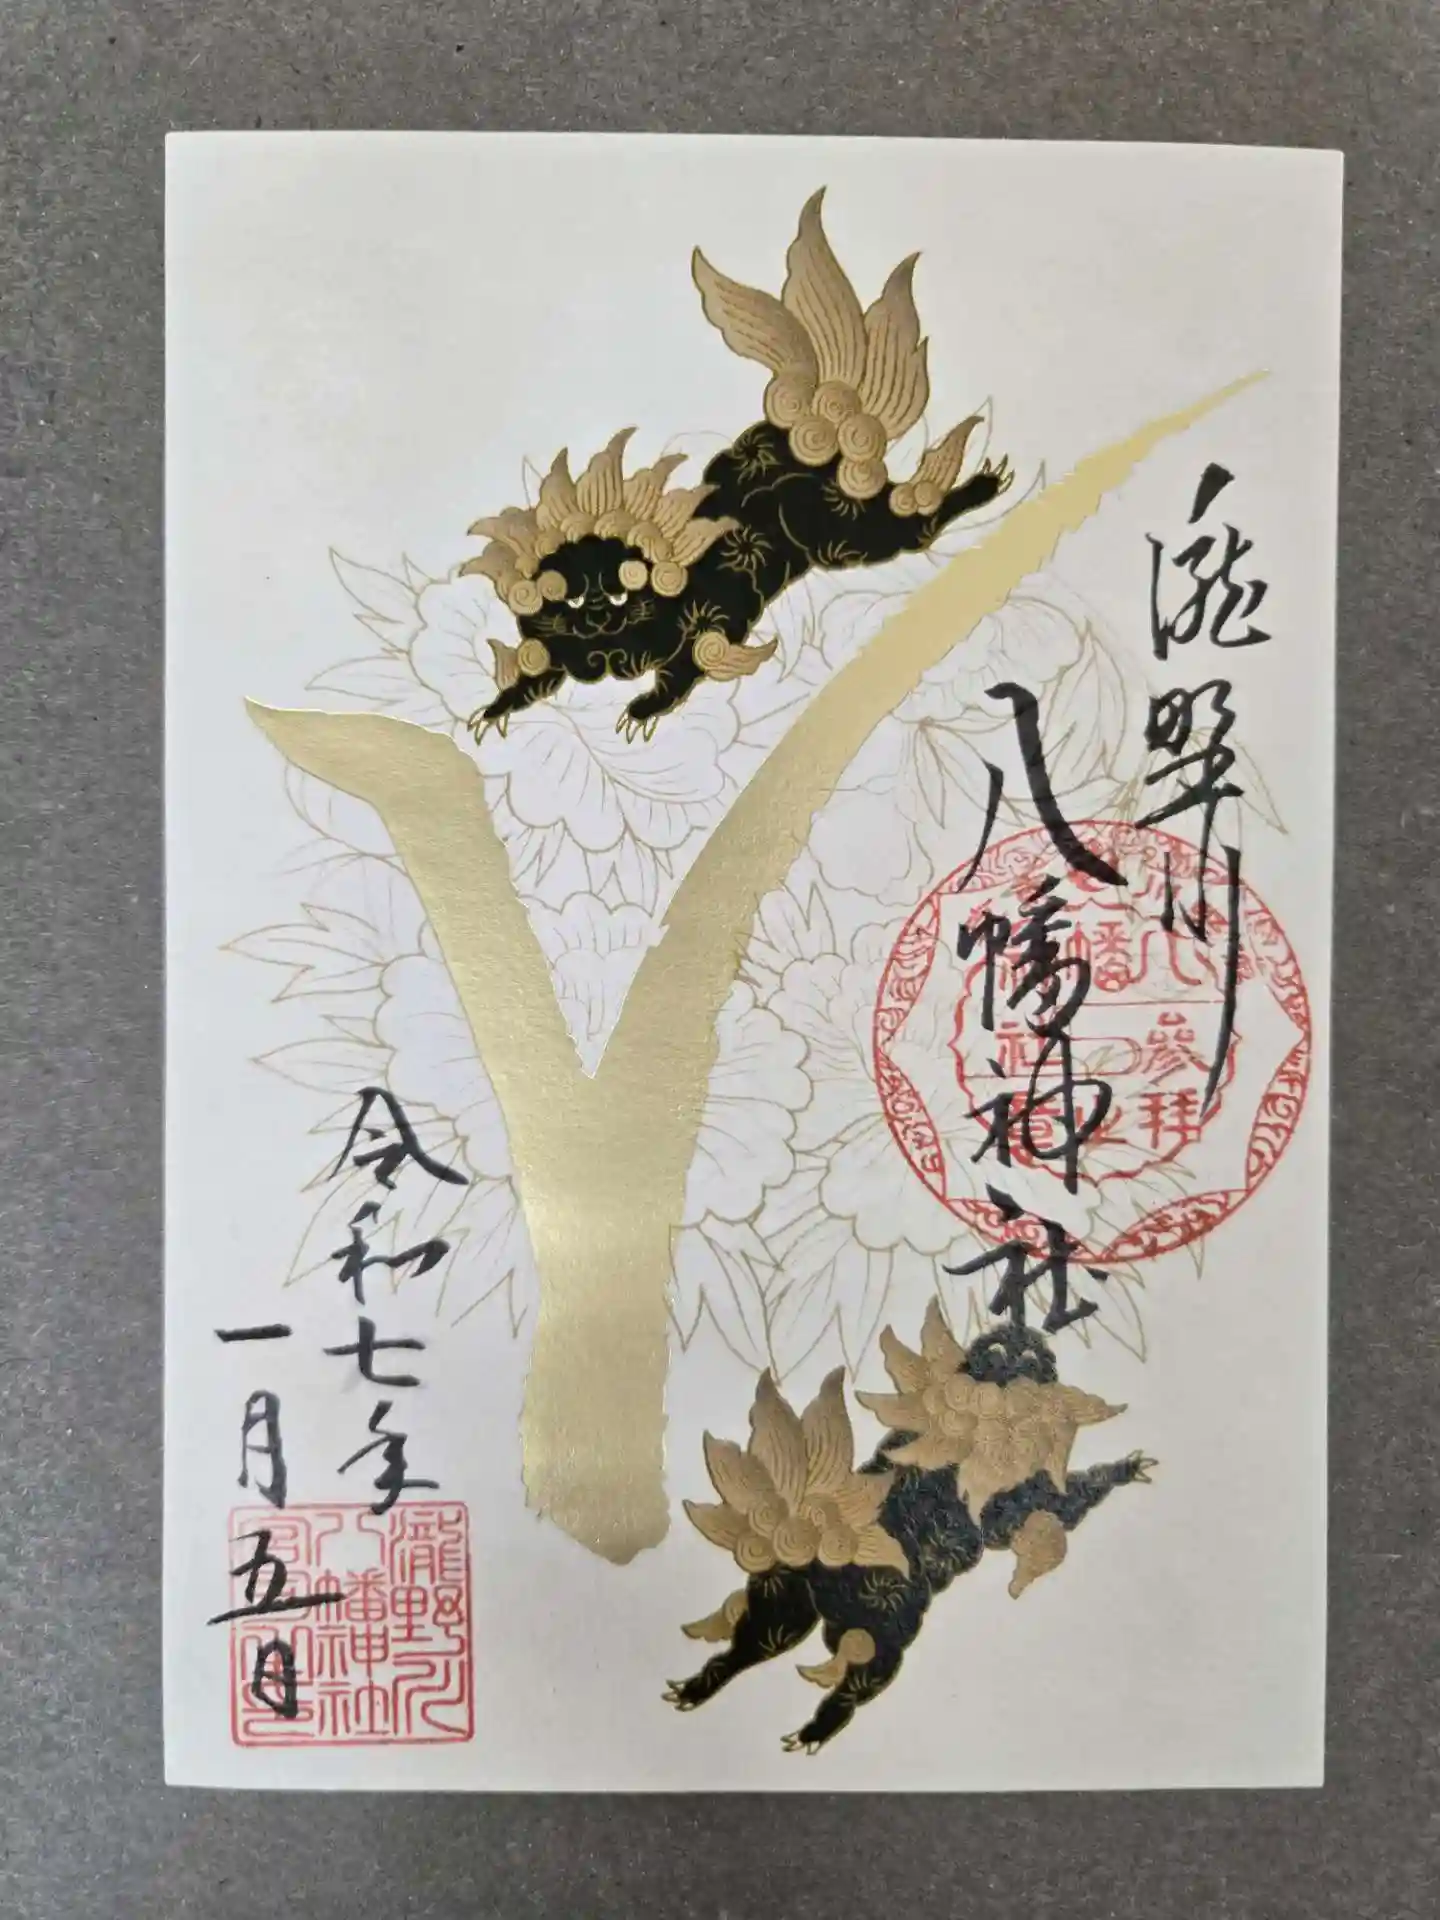 瀧野川
八幡神社
八幡神社
参拝之
令和七年
一月五日
瀧野川
八幡神社